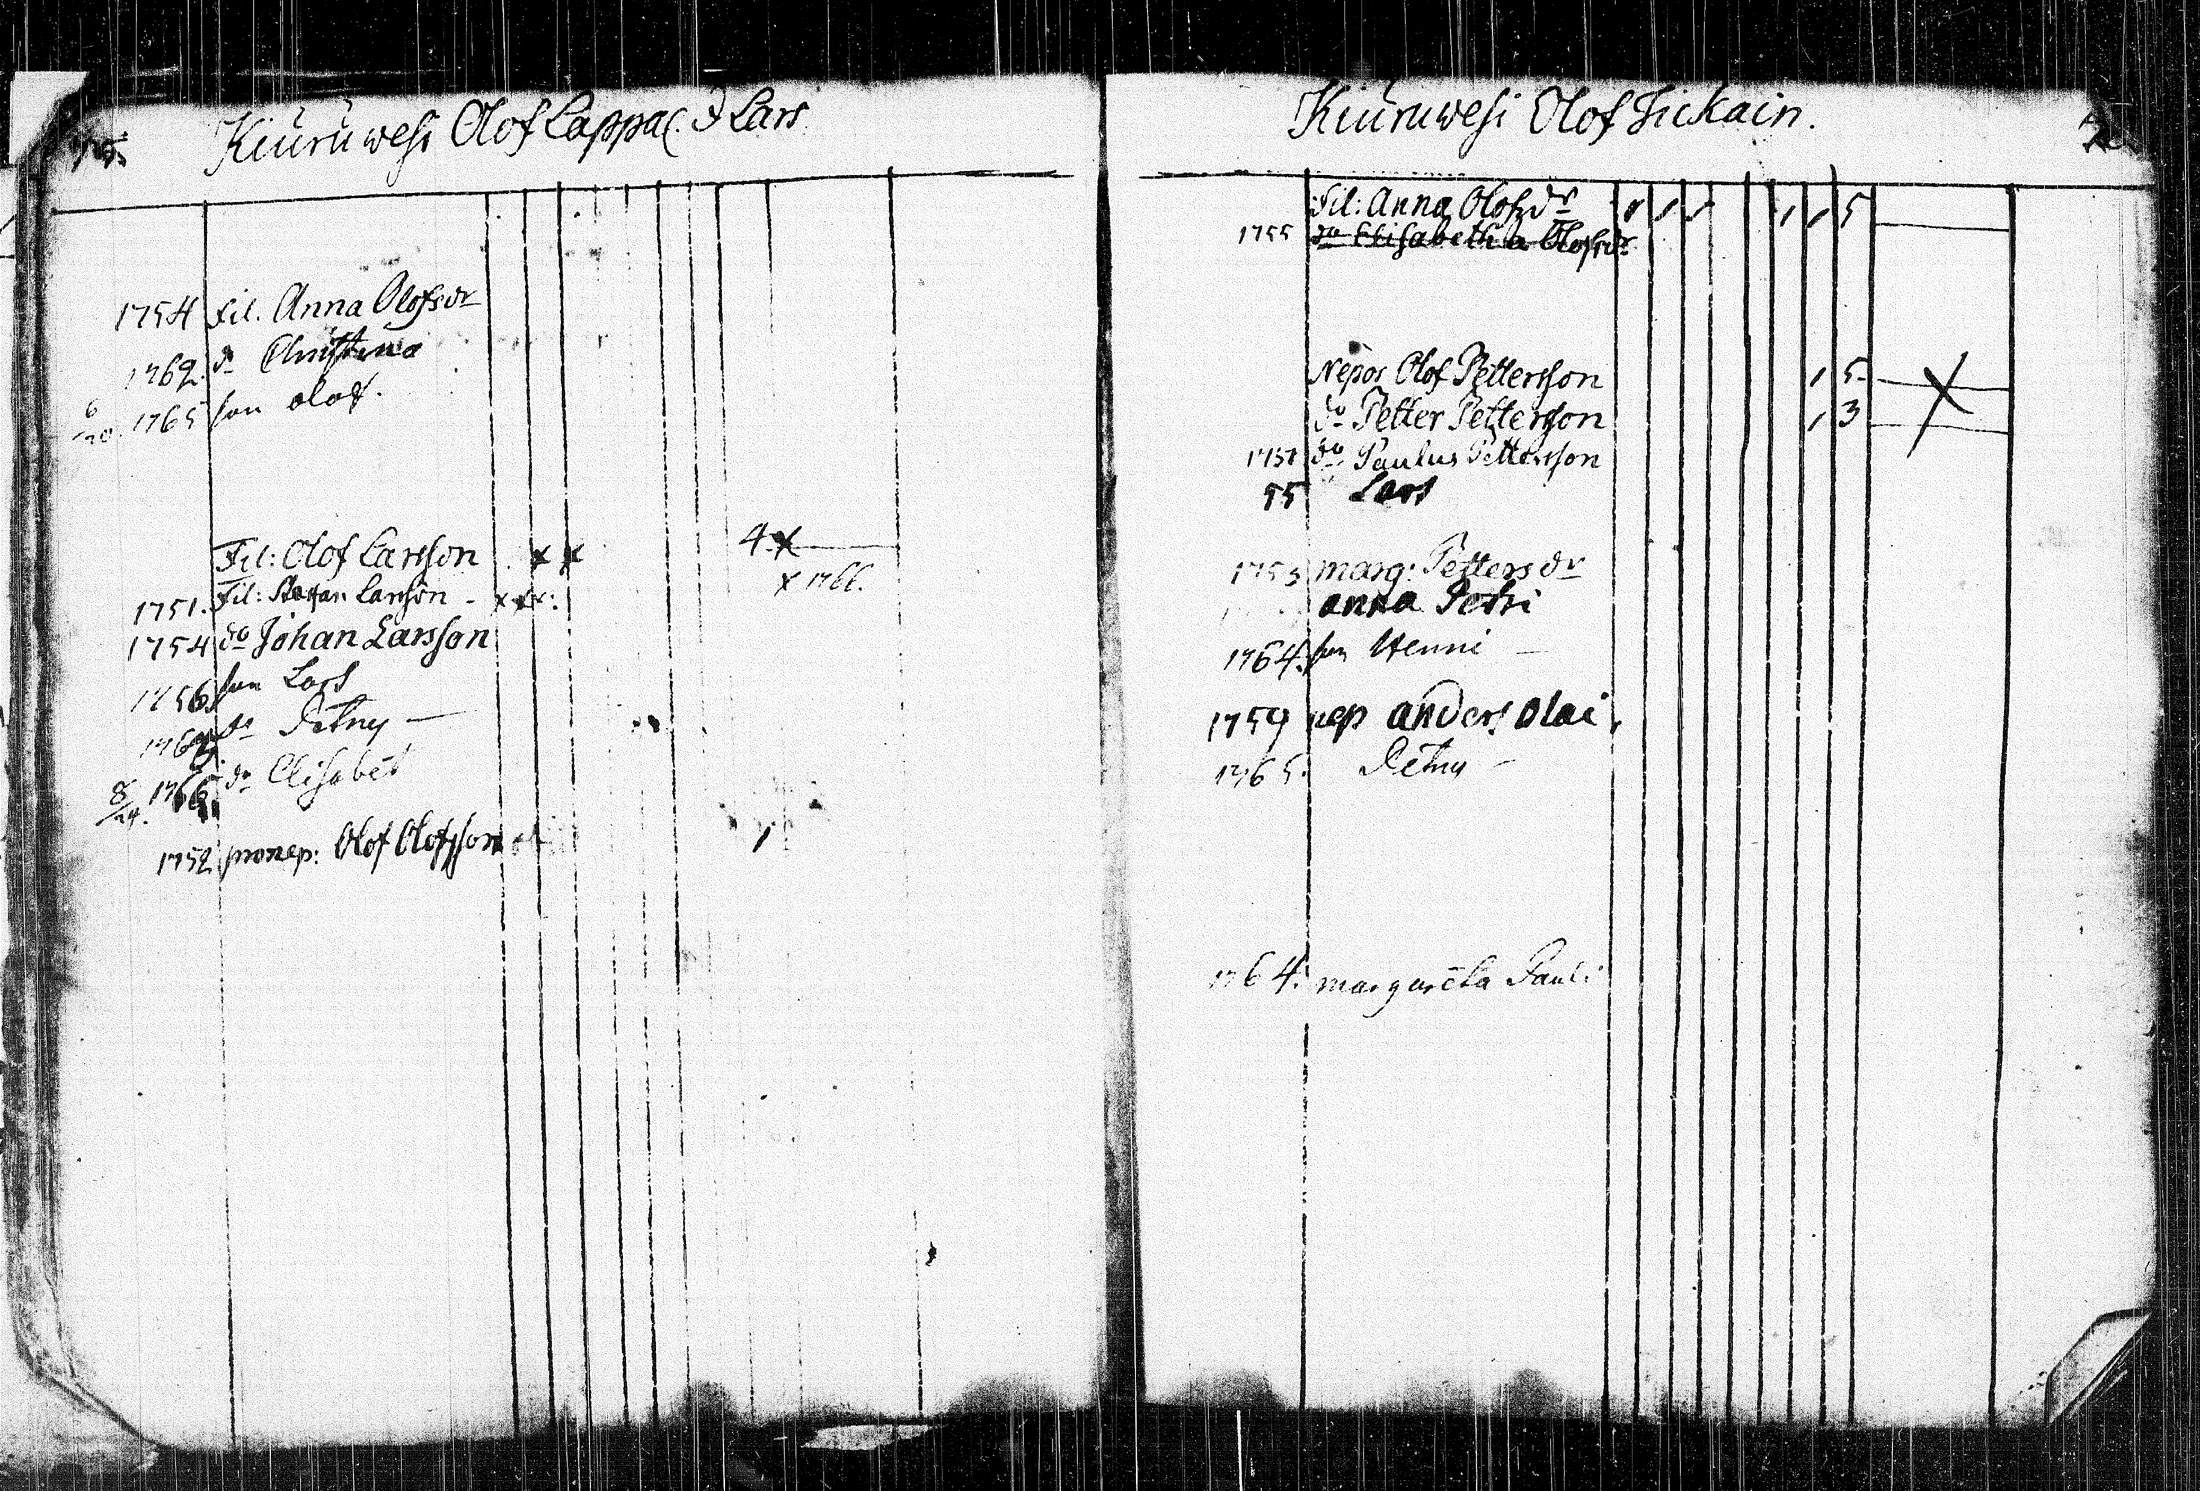 Kiuruwesi Olof Lappal. & Lars
1754 Fil. Anna Olofsdr
1762. do Christina
6/20. 1765 son olof.
Fil: Olof Larsson x x 4. x
1751. Fil: Staffan Larsson - x x x. x 1766.
1754 do Johan Larsson
1756. son Lars
do Petrus —
8/24. 1766. do Elisabet
1752 pronep: Olof Olofsson 1
Kiuruwesi Olof Tickain.
Fil: Anna Olofsdr 1 1 1 1 1 5
1755 do Elisabetha Olofsdr
Nepos Olof Pettersson 1 5 X
do Petter Pettersson 1 3
1751 do Paulus Pettersson
55 Lars
1753 marg: Pettersdr
anna Petri
1764. son Henni —
1759 nep anders olai.
1765. Petrus —
1764. margareta Pauli